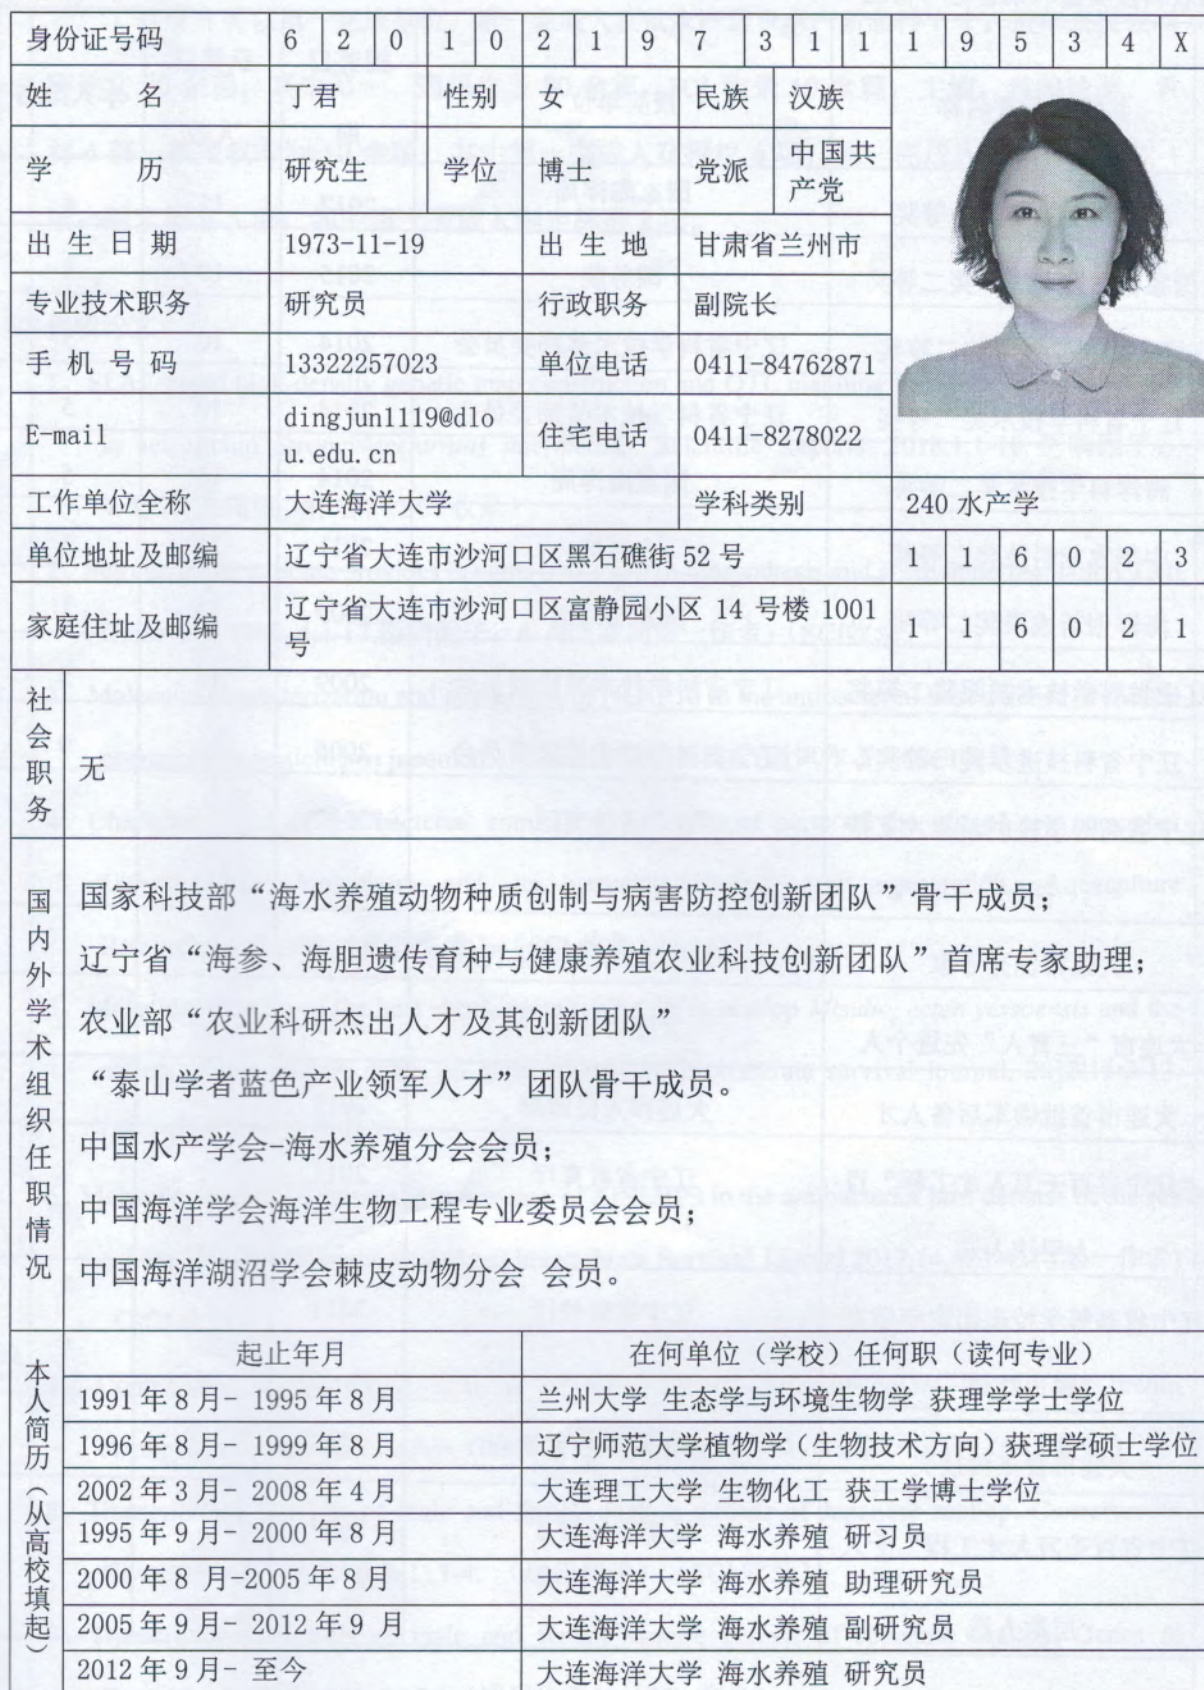 身份证号码 6 2 0 1 0 2 1 9 7 3 1 1 1 9 5 3 4 X
姓 名 丁君 性别 女 民族 汉族
学 历 研究生 学位 博士 党派 中国共
产党
出 生 日 期 1973-11-19 出 生 地 甘肃省兰州市
专业技术职务 研究员 行政职务 副院长
手 机 号 码 13322257023 单位电话 0411-84762871
E-mail dingjun1119@dlo
u.edu.cn 住宅电话 0411-8278022
工作单位全称 大连海洋大学 学科类别 240 水产学
单位地址及邮编 辽宁省大连市沙河口区黑石礁街 52 号 1 1 6 0 2 3
家庭住址及邮编 辽宁省大连市沙河口区富静园小区 14 号楼 1001
号 1 1 6 0 2 1
社会职务 无
国内外学术组织任职情况
国家科技部“海水养殖动物种质创制与病害防控创新团队”骨干成员；
辽宁省“海参、海胆遗传育种与健康养殖农业科技创新团队”首席专家助理；
农业部“农业科研杰出人才及其创新团队”
“泰山学者蓝色产业领军人才”团队骨干成员。
中国水产学会-海水养殖分会会员；
中国海洋学会海洋生物工程专业委员会会员；
中国海洋湖沼学会棘皮动物分会 会员。
本人简历（从高校填起）
起止年月 在何单位（学校）任何职（读何专业）
1991 年 8 月- 1995 年 8 月 兰州大学 生态学与环境生物学 获理学学士学位
1996 年 8 月- 1999 年 8 月 辽宁师范大学植物学（生物技术方向）获理学硕士学位
2002 年 3 月- 2008 年 4 月 大连理工大学 生物化工 获工学博士学位
1995 年 9 月- 2000 年 8 月 大连海洋大学 海水养殖 研习员
2000 年 8 月-2005 年 8 月 大连海洋大学 海水养殖 助理研究员
2005 年 9 月- 2012 年 9 月 大连海洋大学 海水养殖 副研究员
2012 年 9 月- 至今 大连海洋大学 海水养殖 研究员